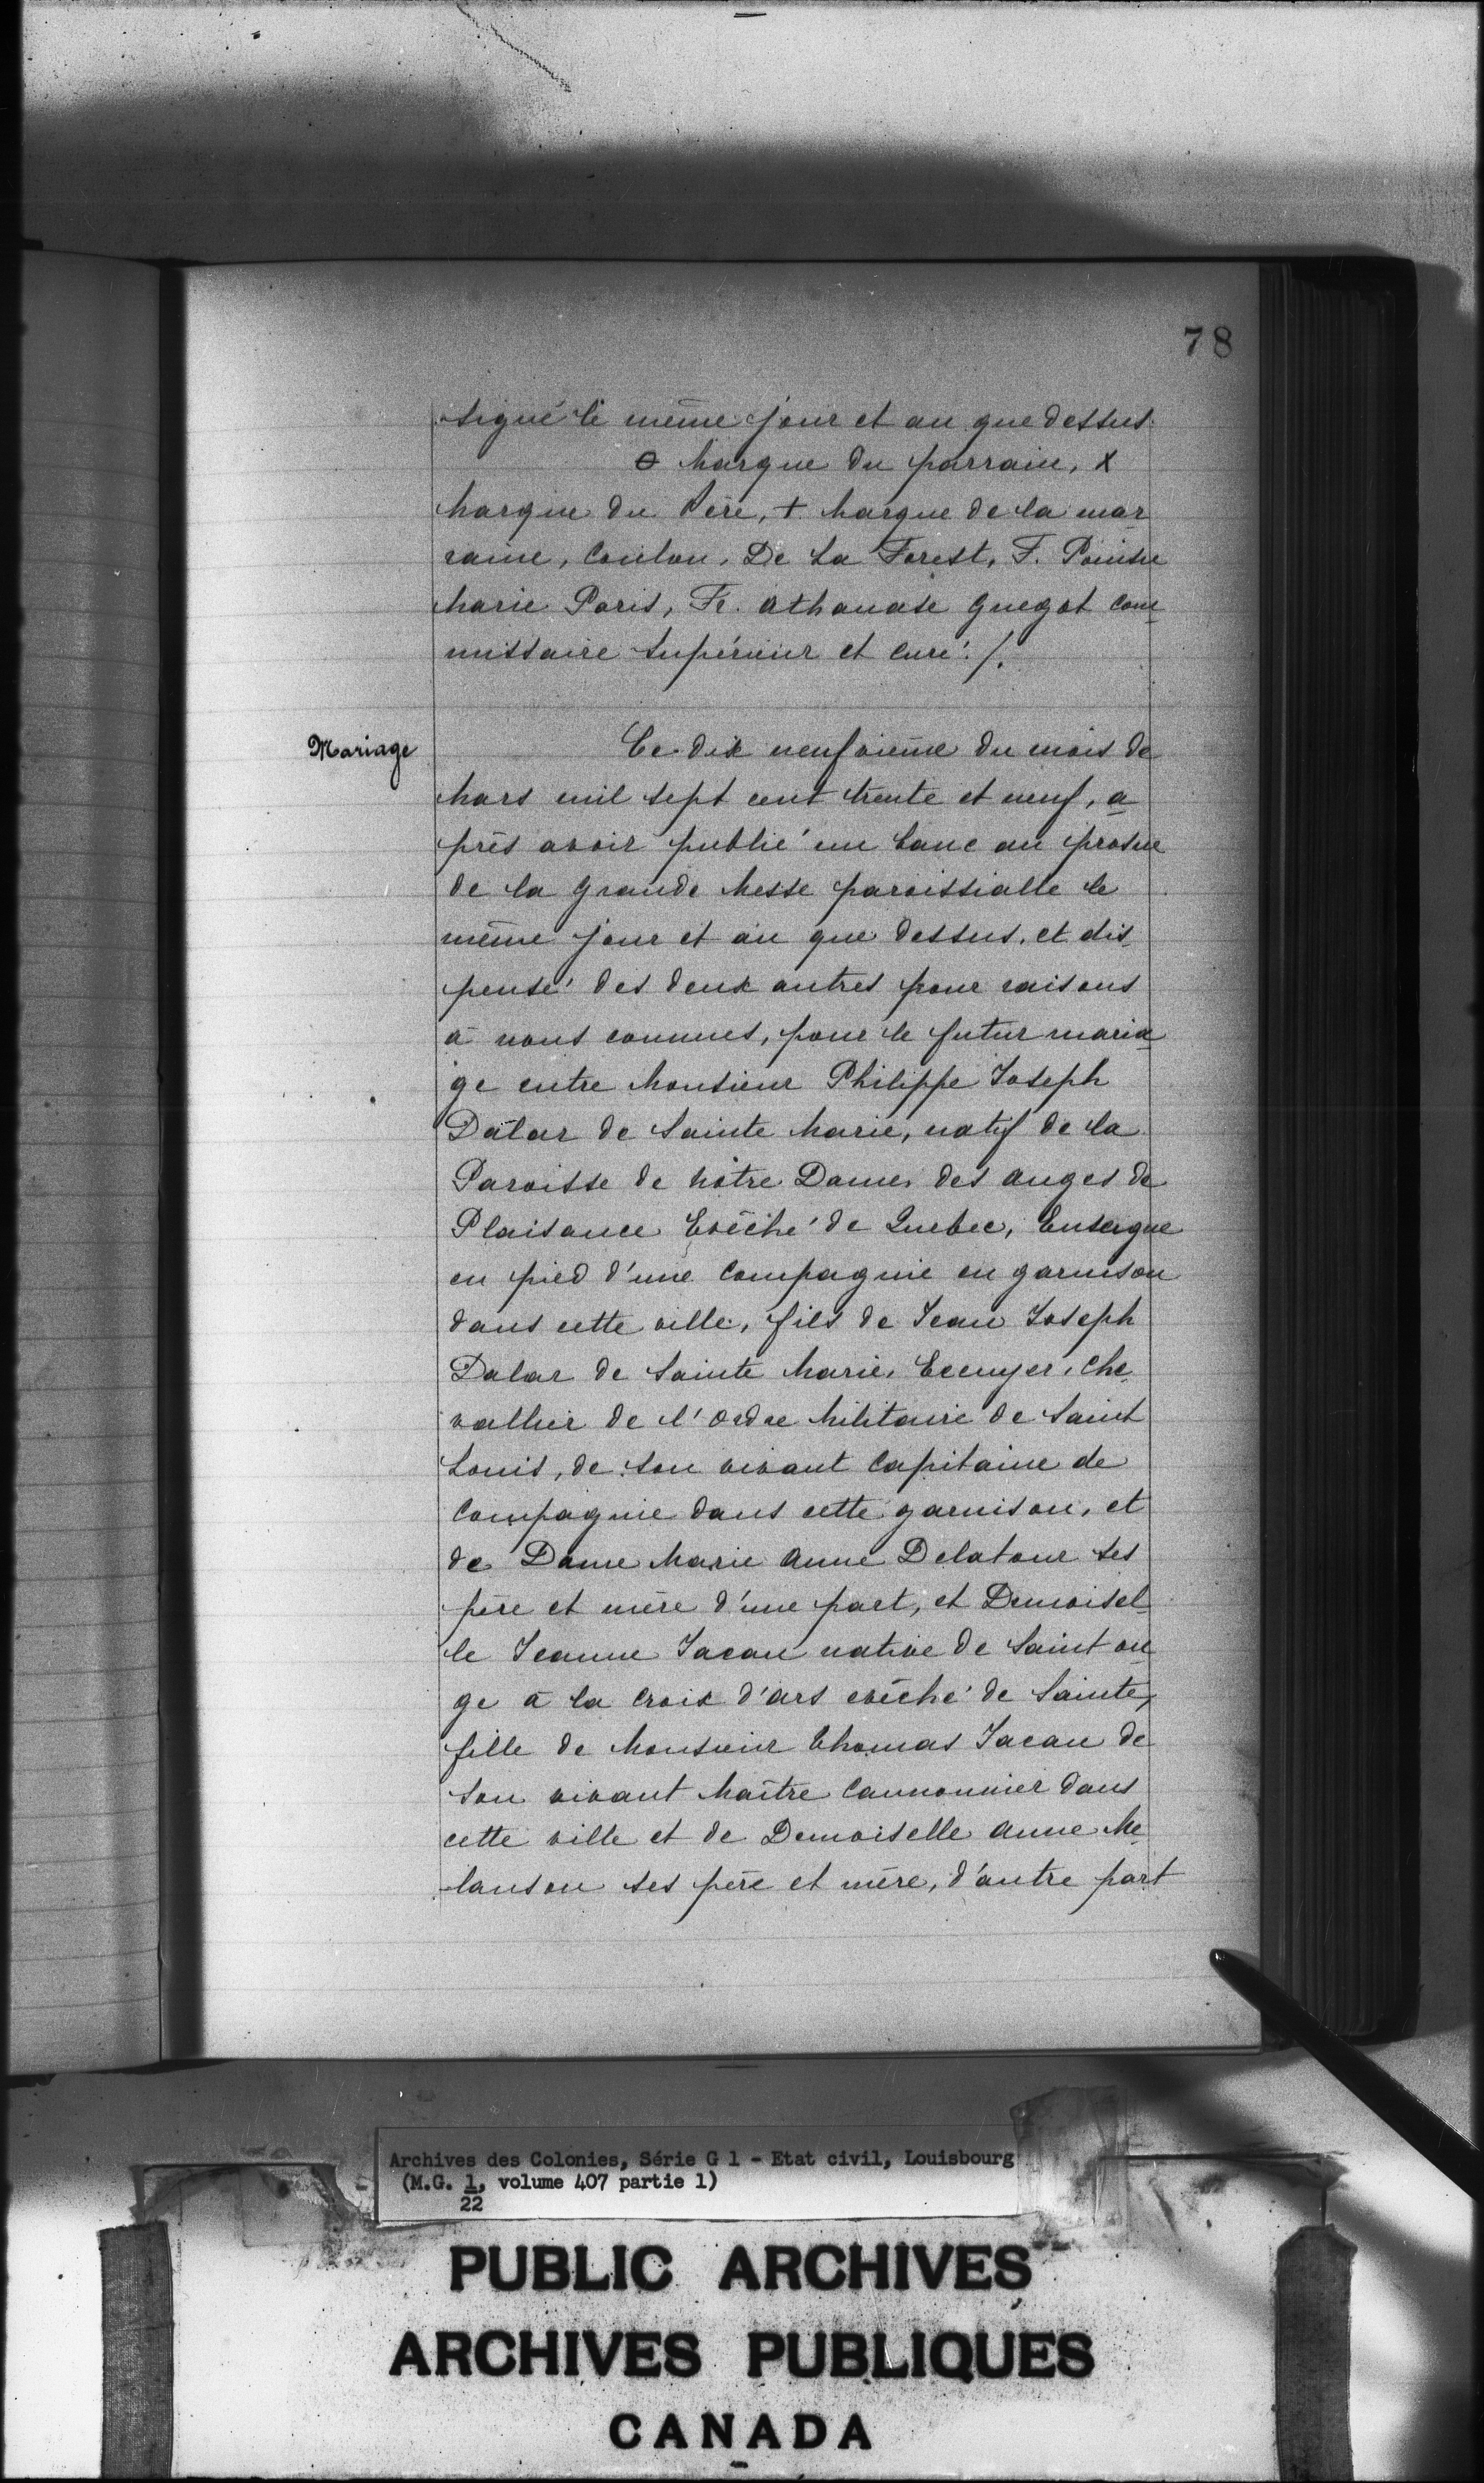 78
signé le même jour et an que dessus.
⊖ Marque du parrain, X
Marque du Père, + Marque de la mar-
raine, Coulon, De La Forest, F. Pointu
Marie Paris, Fr. Athanase Guegot com-
missaire supérieur et curé ./.
Mariage
Ce dix neufvieme du mois de
Mars mil sept cent trente et neuf, a-
près avoir publié un banc au prosne
de la Grande Messe paroissialle le
même jour et an que dessus, et dis-
pensé des deux autres pour raisons
à nous connues, pour le futur maria-
ge entre Monsieur Philippe Joseph
Dalar de Sainte Marie, natif de la
Paroisse de Nôtre Dame des Anges de
Plaisance Evêché de Quebec, Enseigne
en pied d'une Compagnie en garnison
dans cette ville, fils de Jean Joseph
Dalar de Sainte Marie, Ecuyer, Che-
vallier de l'Ordre Militaire de Saint
Louis, de son vivant Capitaine de
Compagnie dans cette garnison, et
de Dame Marie Anne Delatour ses
père et mère d'une part, et Demoisel-
le Jeanne Jacau native de Saint on
ge à la Croix d'ars evêché de Sainte,
fille de Monsieur Thomas Jacau de
son vivant Maître Cannonnier dans
cette ville et de Demoiselle Anne Me-
lanson ses père et mère, d'autre part
Archives des Colonies, Série G 1 - Etat civil, Louisbourg
(M.G. 1, volume 407 partie 1)
22
PUBLIC ARCHIVES
ARCHIVES PUBLIQUES
CANADA